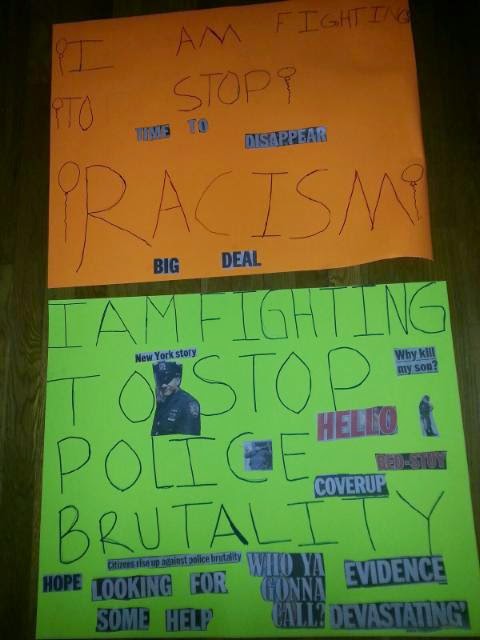 I AM FIGHTING
TO STOP
TIME TO DISAPPEAR
RACISM
BIG DEAL
I AM FIGHTING
New York story
Why kill
my son?
TO STOP
HELLO
POLICE
BED-STUY
COVERUP
BRUTALITY
Citizens rise up against police brutality
WHO YA
GONNA
CALL?
EVIDENCE
HOPE LOOKING FOR
SOME HELP
DEVASTATING'